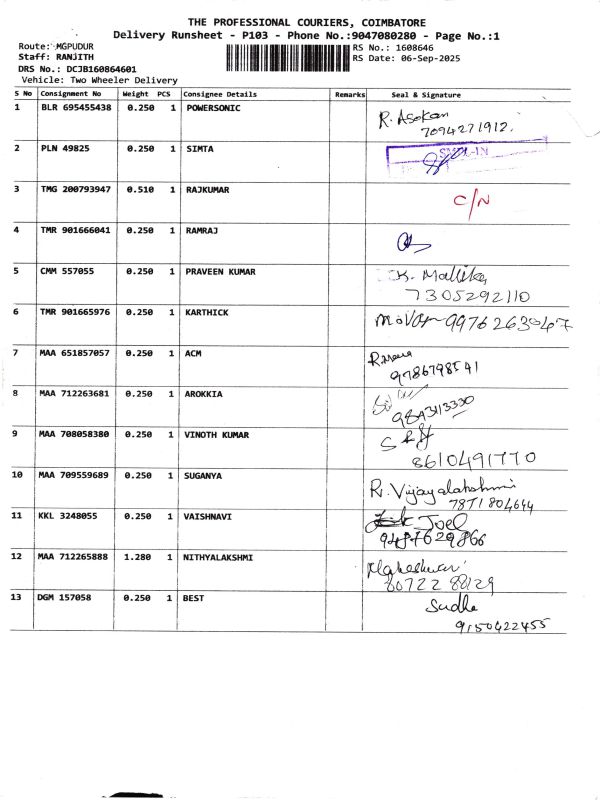 THE PROFESSIONAL COURIERS, COIMBATORE
Delivery Runsheet - P103 - Phone No.:9047080280 - Page No.:1
Route: MGPUDUR
RS No.: 1608646
Staff: RANJITH
RS Date: 06-Sep-2025
DRS No.: DCJB160864601
Vehicle: Two Wheeler Delivery
S No Consignment No Weight PCS Consignee Details Remarks Seal & Signature
1 BLR 695455438 0.250 1 POWERSONIC R. Asokan
7094271912.
2 PLN 49825 0.250 1 SIMTA
3 TMG 200793947 0.510 1 RAJKUMAR C/N
4 TMR 901666041 0.250 1 RAMRAJ
5 CMM 557055 0.250 1 PRAVEEN KUMAR K. Mallika
7305292110
6 TMR 901665976 0.250 1 KARTHICK 9976263047
7 MAA 651857057 0.250 1 ACM
9786798541
8 MAA 712263681 0.250 1 AROKKIA
9843113330
9 MAA 708058380 0.250 1 VINOTH KUMAR
8610491770
10 MAA 709559689 0.250 1 SUGANYA R. Vijayalakshmi
7871804644
11 KKL 3248055 0.250 1 VAISHNAVI Joel
9487629866
12 MAA 712265888 1.280 1 NITHYALAKSHMI Mageshwari
80722 88129
13 DGM 157058 0.250 1 BEST Sudha
9150422455